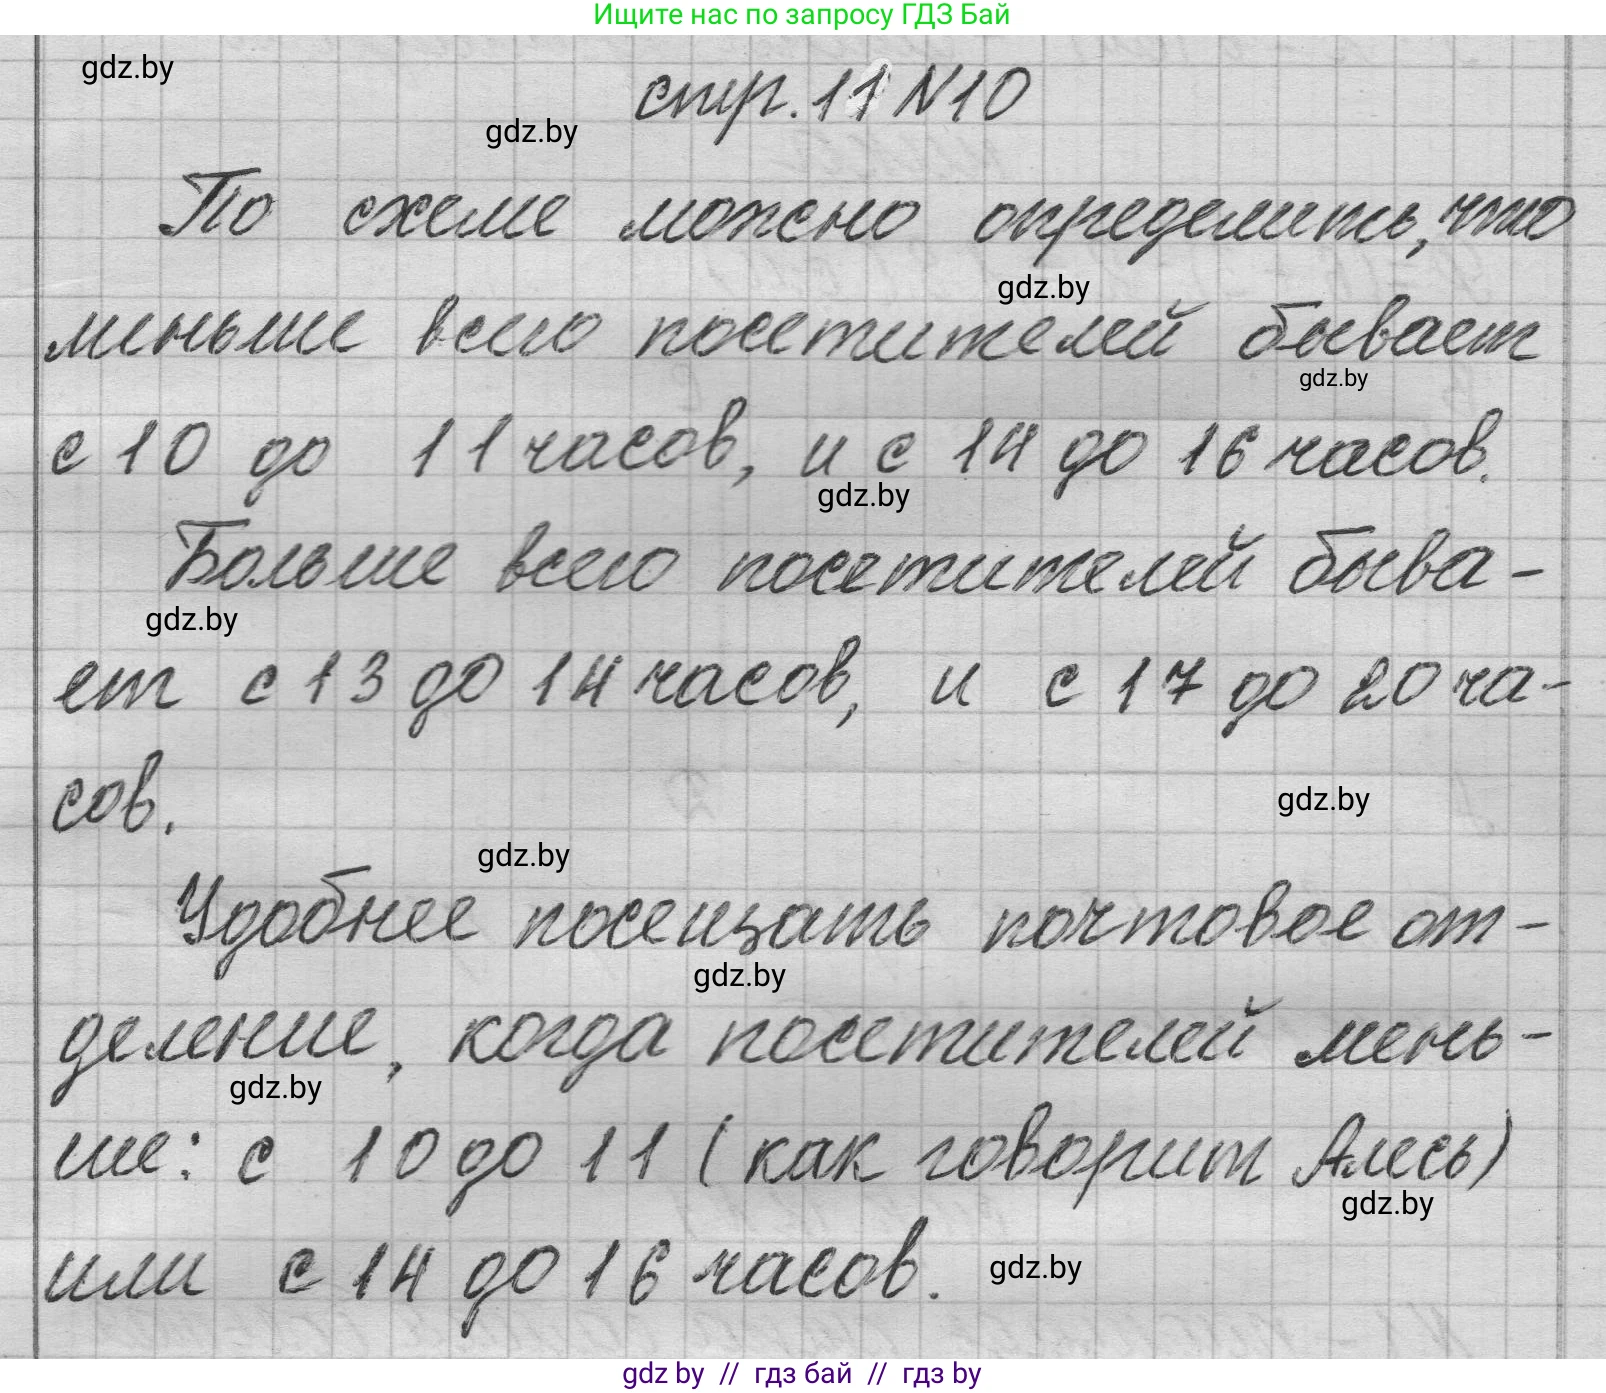 Ищите нас по запросу ГДЗ Бай
gdz.by
стр. 11 №10
gdz.by
По схеме можно определить, что
gdz.by
меньше всего посетителей бывает
gdz.by
с 10 до 11 часов, и с 14 до 16 часов.
gdz.by
Больше всего посетителей быва-
gdz.by
ет с 13 до 14 часов, и с 17 до 20 ча-
сов.
gdz.by
gdz.by
Удобнее посещать почтовое от-
gdz.by
деление, когда посетителей мень-
gdz.by
ше: с 10 до 11 (как говорит Алесь)
gdz.by
или с 14 до 16 часов.
gdz.by
gdz by // гдз бай // gdz by